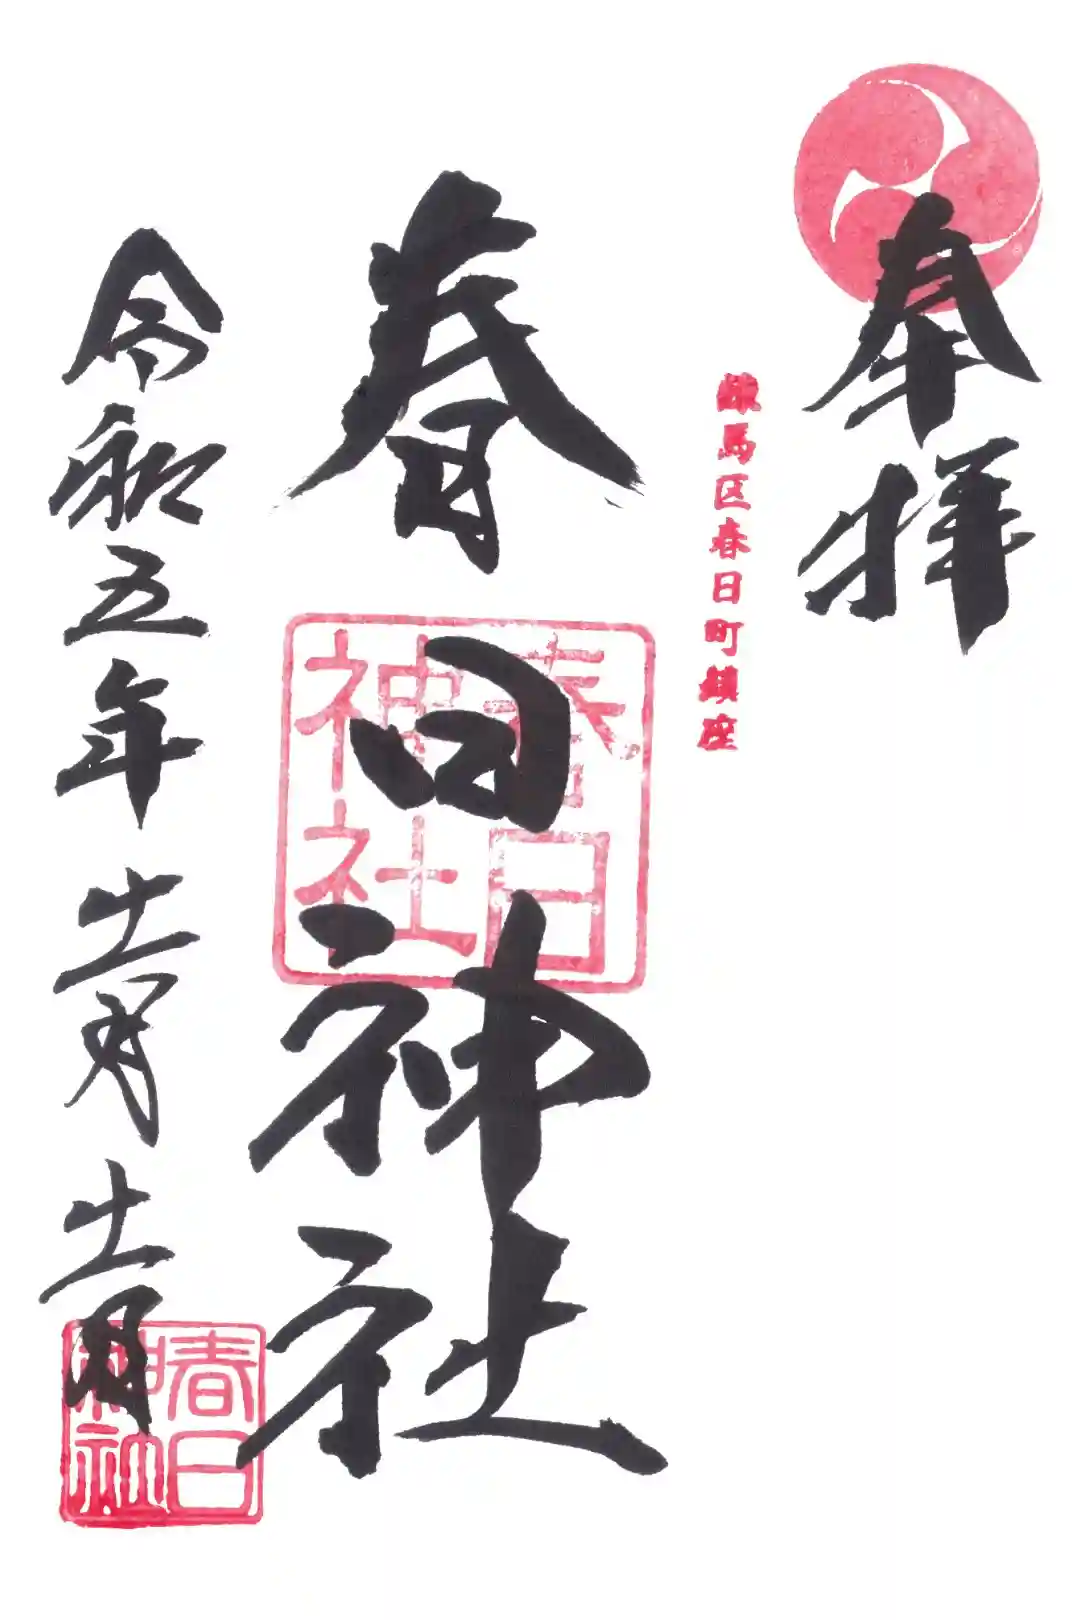 奉拝
練馬区春日町鎮座
春日神社
春日
神社
令和五年十一月十一日
春日
神社